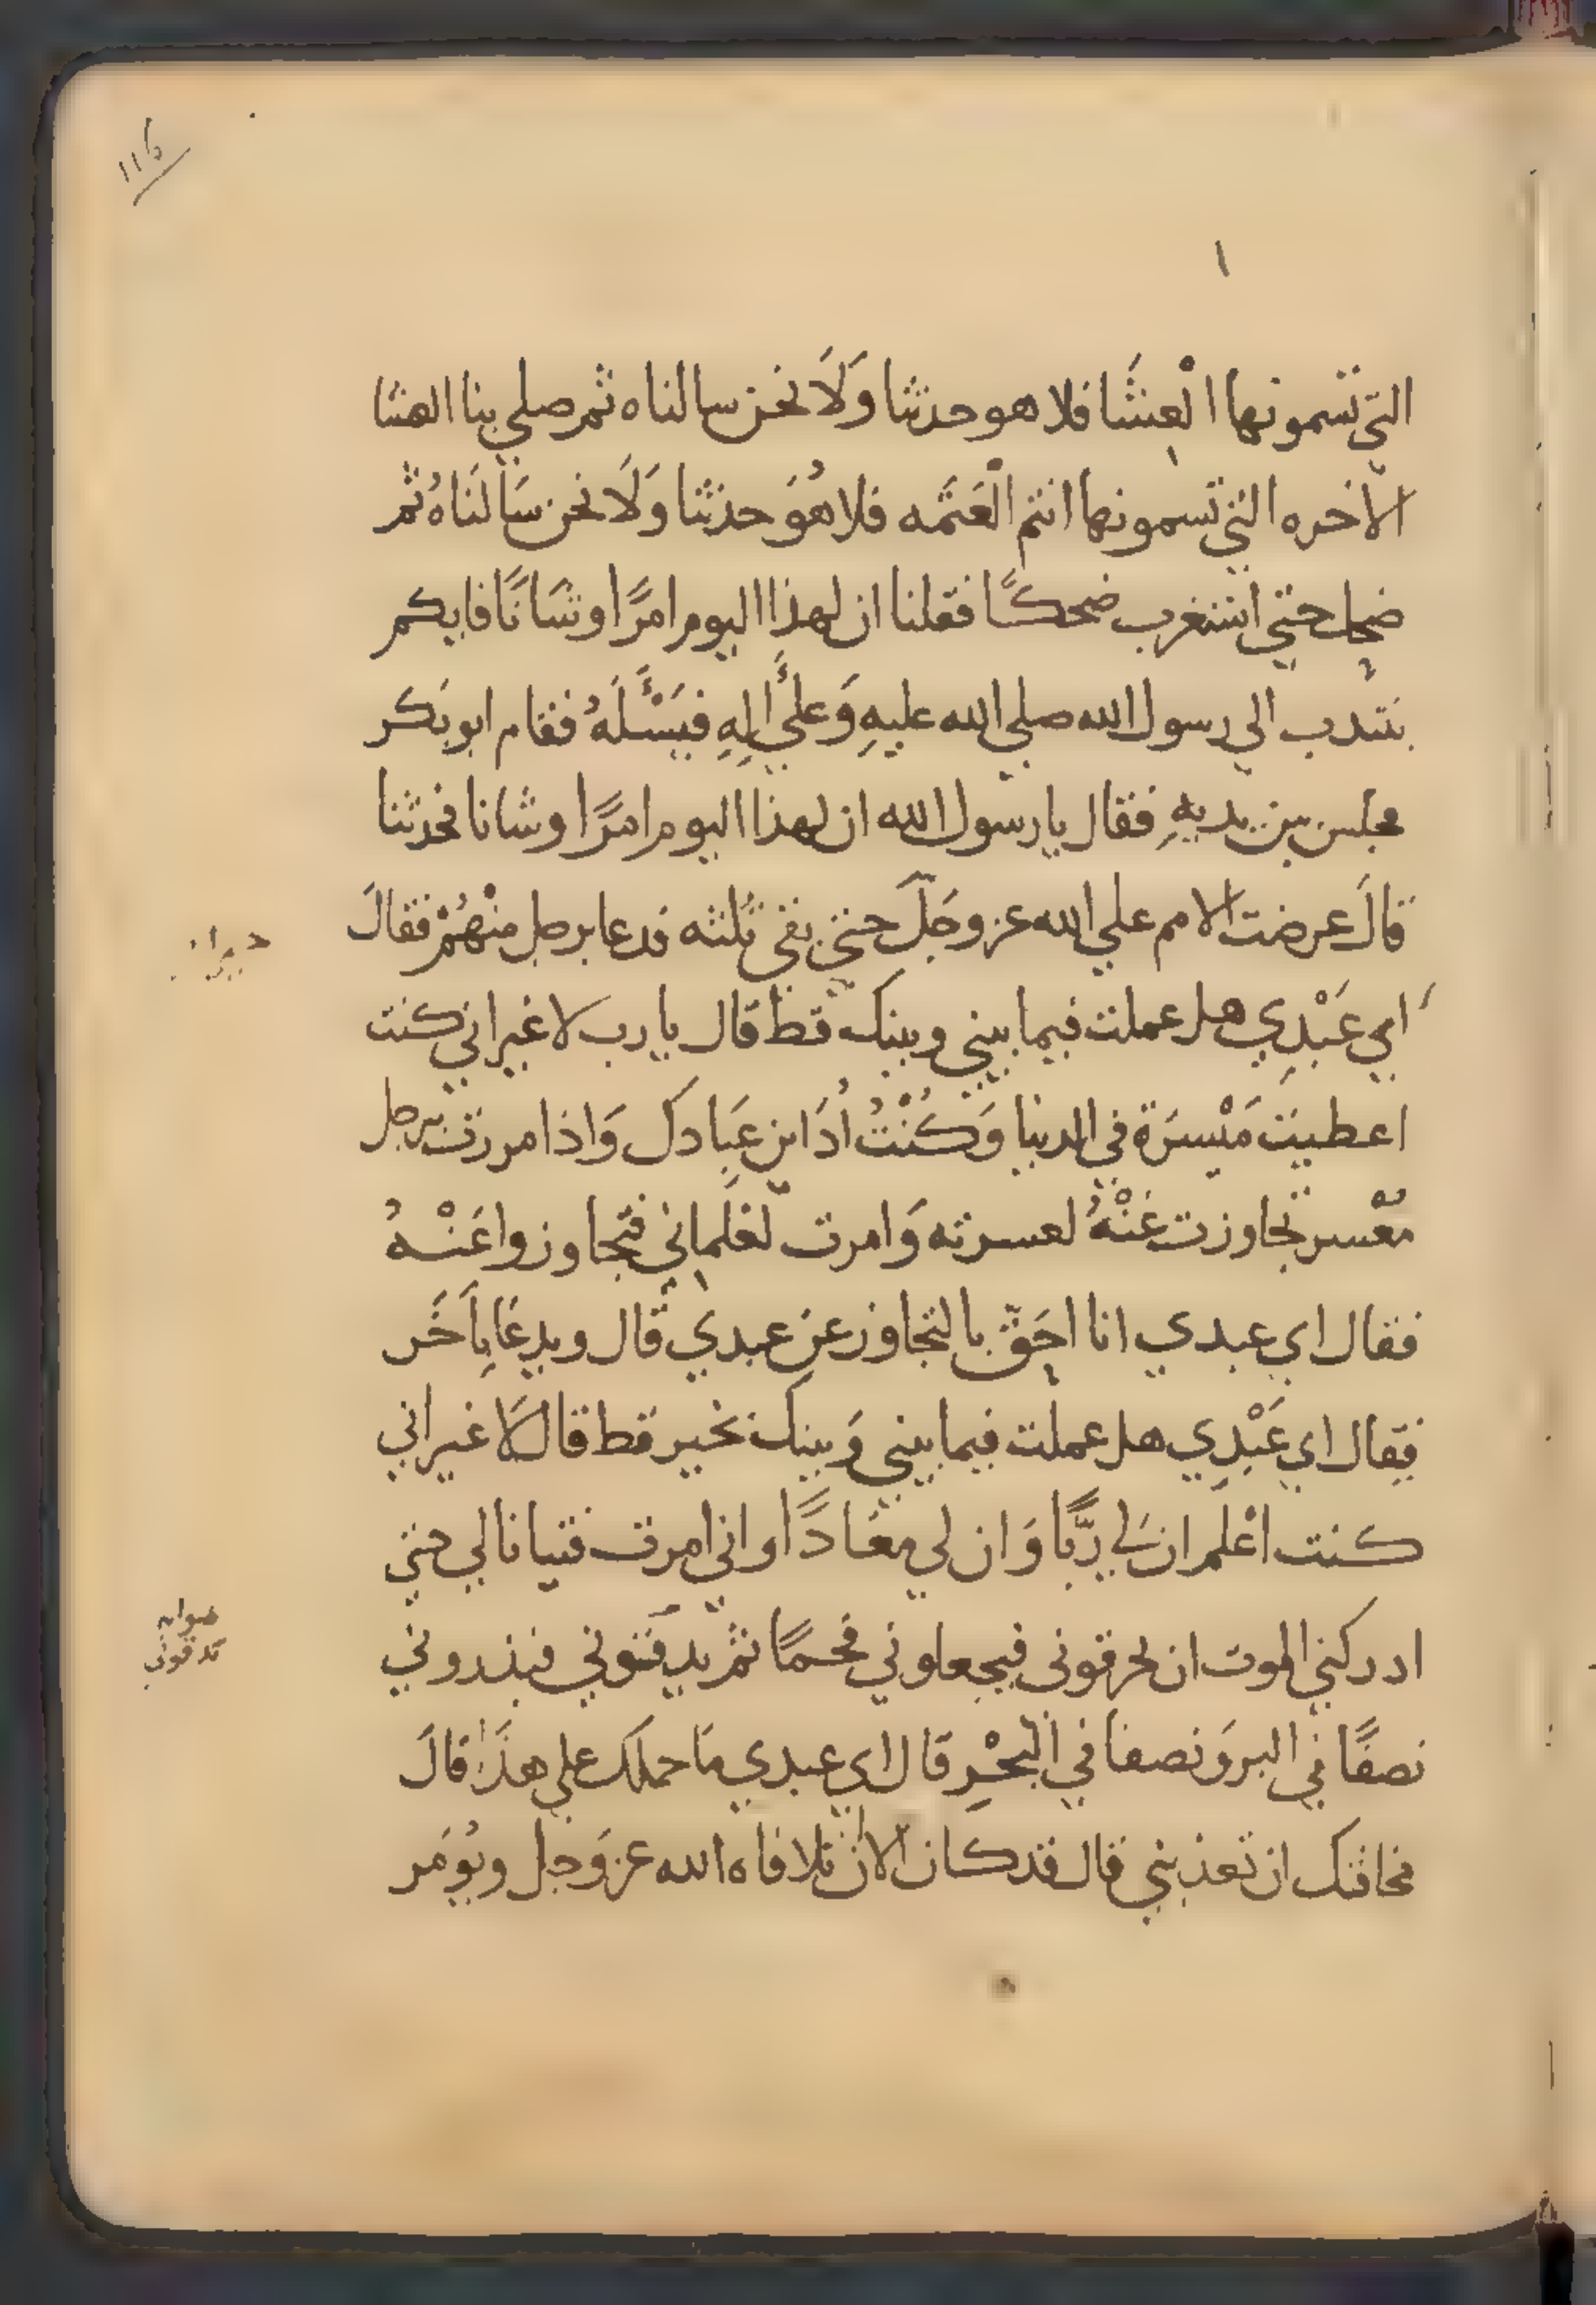 ١١٤
١
التي تسمونها العشا فلا هو حدثنا وَلَا نحن سالناه ثم صلي بنا العشا
الاخره التي تسمونها انتم الْعَتَمَه فلا هُوَ حدثنا وَلَا نحن سَالنَاهُ ثم
ضحك حتي استغرب ضحكًا فقلنا ان لهذا اليوم امرًا وشَانًا فايكم
ينتدب الي رسول الله صلي الله عليهِ وَعليَ الهِ فيَسْئَلَهُ فقام ابو بَكر
فجلس بين يديهِ فقال يا رسول الله ان لهذا اليوم امرًا وشانا فحدثنا
قالَ عرضت الامم علي الله عز وجَلّ حتي بقي ثلثه فدعا برجل منْهُمْ فقالَ
اي عَبْدِي هل عملت فيما بيني وبينك قط قال يا رب لا غير اني كنت
اعطيت مَيْسَرَة في الدنيا وَكُنْتُ اُدَاين عِبَادكَ وَاذا مررت برجل
مُعْسر تجاوزت عَنْهُ لعسرته وَامرت لغلماني فتجاوزوا عَنْهُ
فقال اي عبدي انا احَقّ بالتجاوز عن عبدي قال ويدعَا بِاَخَر
فيقال اي عَبْدِي هل عملت فيما بيني وَبينك بخير قط قال لَا غير اني
كنت اعْلم ان لي رَبًّا وَان لي معَادًا واني امرت فتيانا لي حتي
ادركني الموت ان يحرقوني فيجعلوني فحمًا ثم يدفنوني فيذروني
صوابه
تدقوني
نصفًا في البر وَنصفا في البَحْرِ قال اي عبدي مَا حملك علي هذَا قالَ
مخافتك ان تعذبني قال قد كان الان تلافاه الله عز وَجل ويُومَر